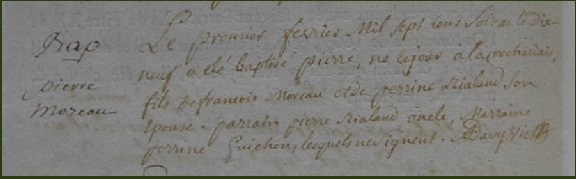 Bap
pierre
moreau
Le premier fevrier Mil sept cens Soixante Dix-
neuf a été baptisé pierre, né cejour à la rochardais,
fils de francois Moreau et de perrine Rialand Son
Epouse. parrain pierre Rialand oncle, Marraine
perrine Guichon, lesquels ne signent.